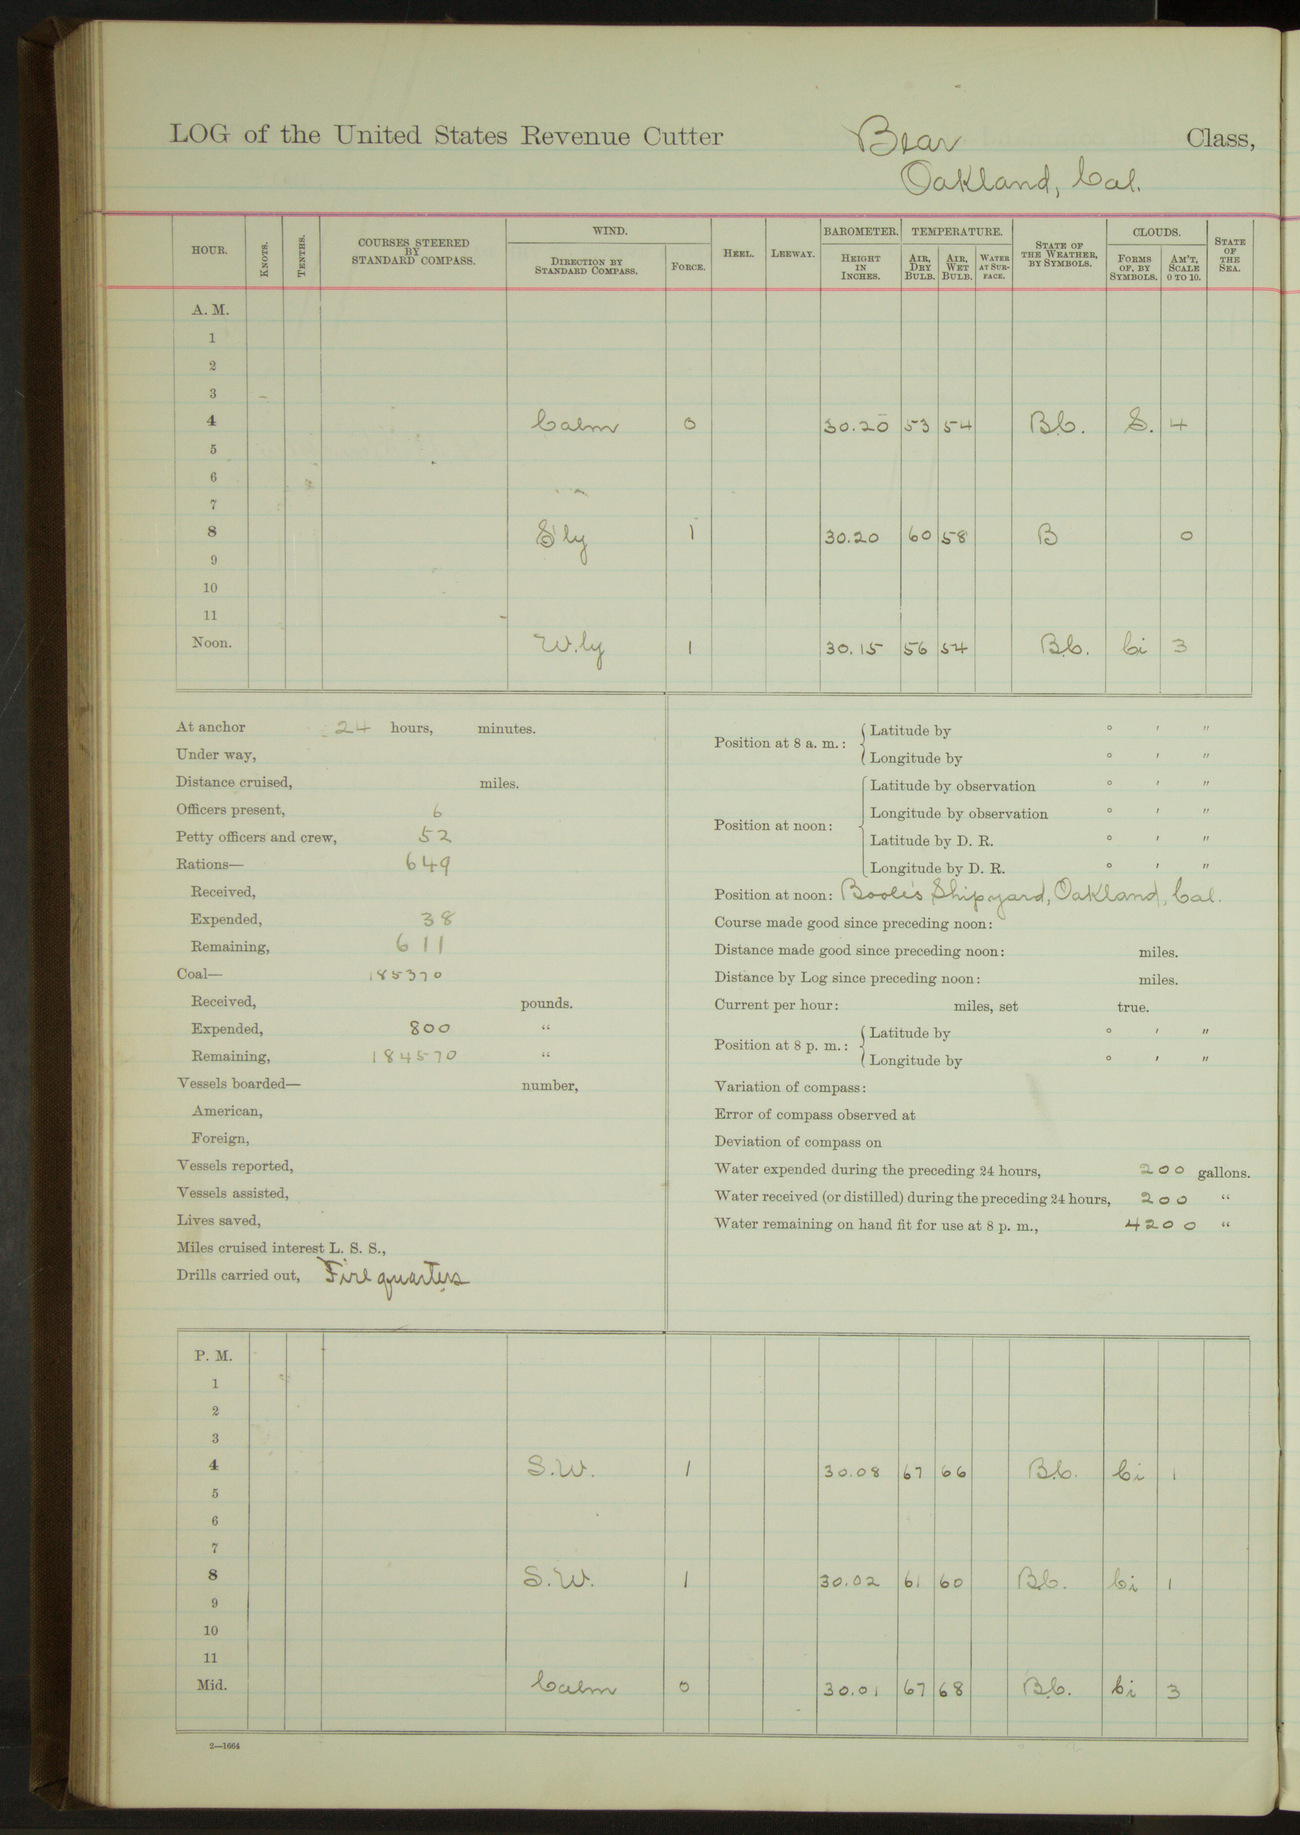 LOG of the United States Revenue Cutter Bear Class,
Oakland, Cal.
HOUR. KNOTS. TENTHS. COURSES STEERED BY STANDARD COMPASS. WIND. DIRECTION BY STANDARD COMPASS. FORCE. HEEL. LEEWAY. BAROMETER. HEIGHT IN INCHES. TEMPERATURE. AIR, DRY BULB. AIR, WET BULB. WATER AT SURFACE. STATE OF THE WEATHER, BY SYMBOLS. CLOUDS. FORMS OF, BY SYMBOLS. AM'T, SCALE 0 TO 10. STATE OF THE SEA.
A. M.
1
2
3
4 Calm 0 30.20 53 54 B.C. S. 4
5
6
7
8 S'ly 1 30.20 60 58 B 0
9
10
11
Noon. W.ly 1 30.15 56 54 B.C. Ci 3
At anchor 24 hours, minutes.
Under way,
Distance cruised, miles.
Officers present, 6
Petty officers and crew, 52
Rations— 649
Received,
Expended, 38
Remaining, 611
Coal— 185370
Received, pounds.
Expended, 800 "
Remaining, 184570 "
Vessels boarded— number,
American,
Foreign,
Vessels reported,
Vessels assisted,
Lives saved,
Miles cruised interest L. S. S.,
Drills carried out, Fire quarters
Position at 8 a. m.: Latitude by ° ' "
Longitude by ° ' "
Position at noon: Latitude by observation ° ' "
Longitude by observation ° ' "
Latitude by D. R. ° ' "
Longitude by D. R. ° ' "
Position at noon: Boole's Shipyard, Oakland, Cal.
Course made good since preceding noon:
Distance made good since preceding noon: miles.
Distance by Log since preceding noon: miles.
Current per hour: miles, set true.
Position at 8 p. m.: Latitude by ° ' "
Longitude by ° ' "
Variation of compass:
Error of compass observed at
Deviation of compass on
Water expended during the preceding 24 hours, 200 gallons.
Water received (or distilled) during the preceding 24 hours, 200 "
Water remaining on hand fit for use at 8 p. m., 4200 "
P. M.
1
2
3
4 S.W. 1 30.08 67 66 B.C. Ci 1
5
6
7
8 S.W. 1 30.02 61 60 B.C. Ci 1
9
10
11
Mid. Calm 0 30.01 67 68 B.C. Ci 3
2—1664